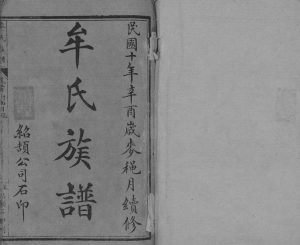 民國十年辛酉歲麥秹月續修
牟氏族譜
紹頡公司石印